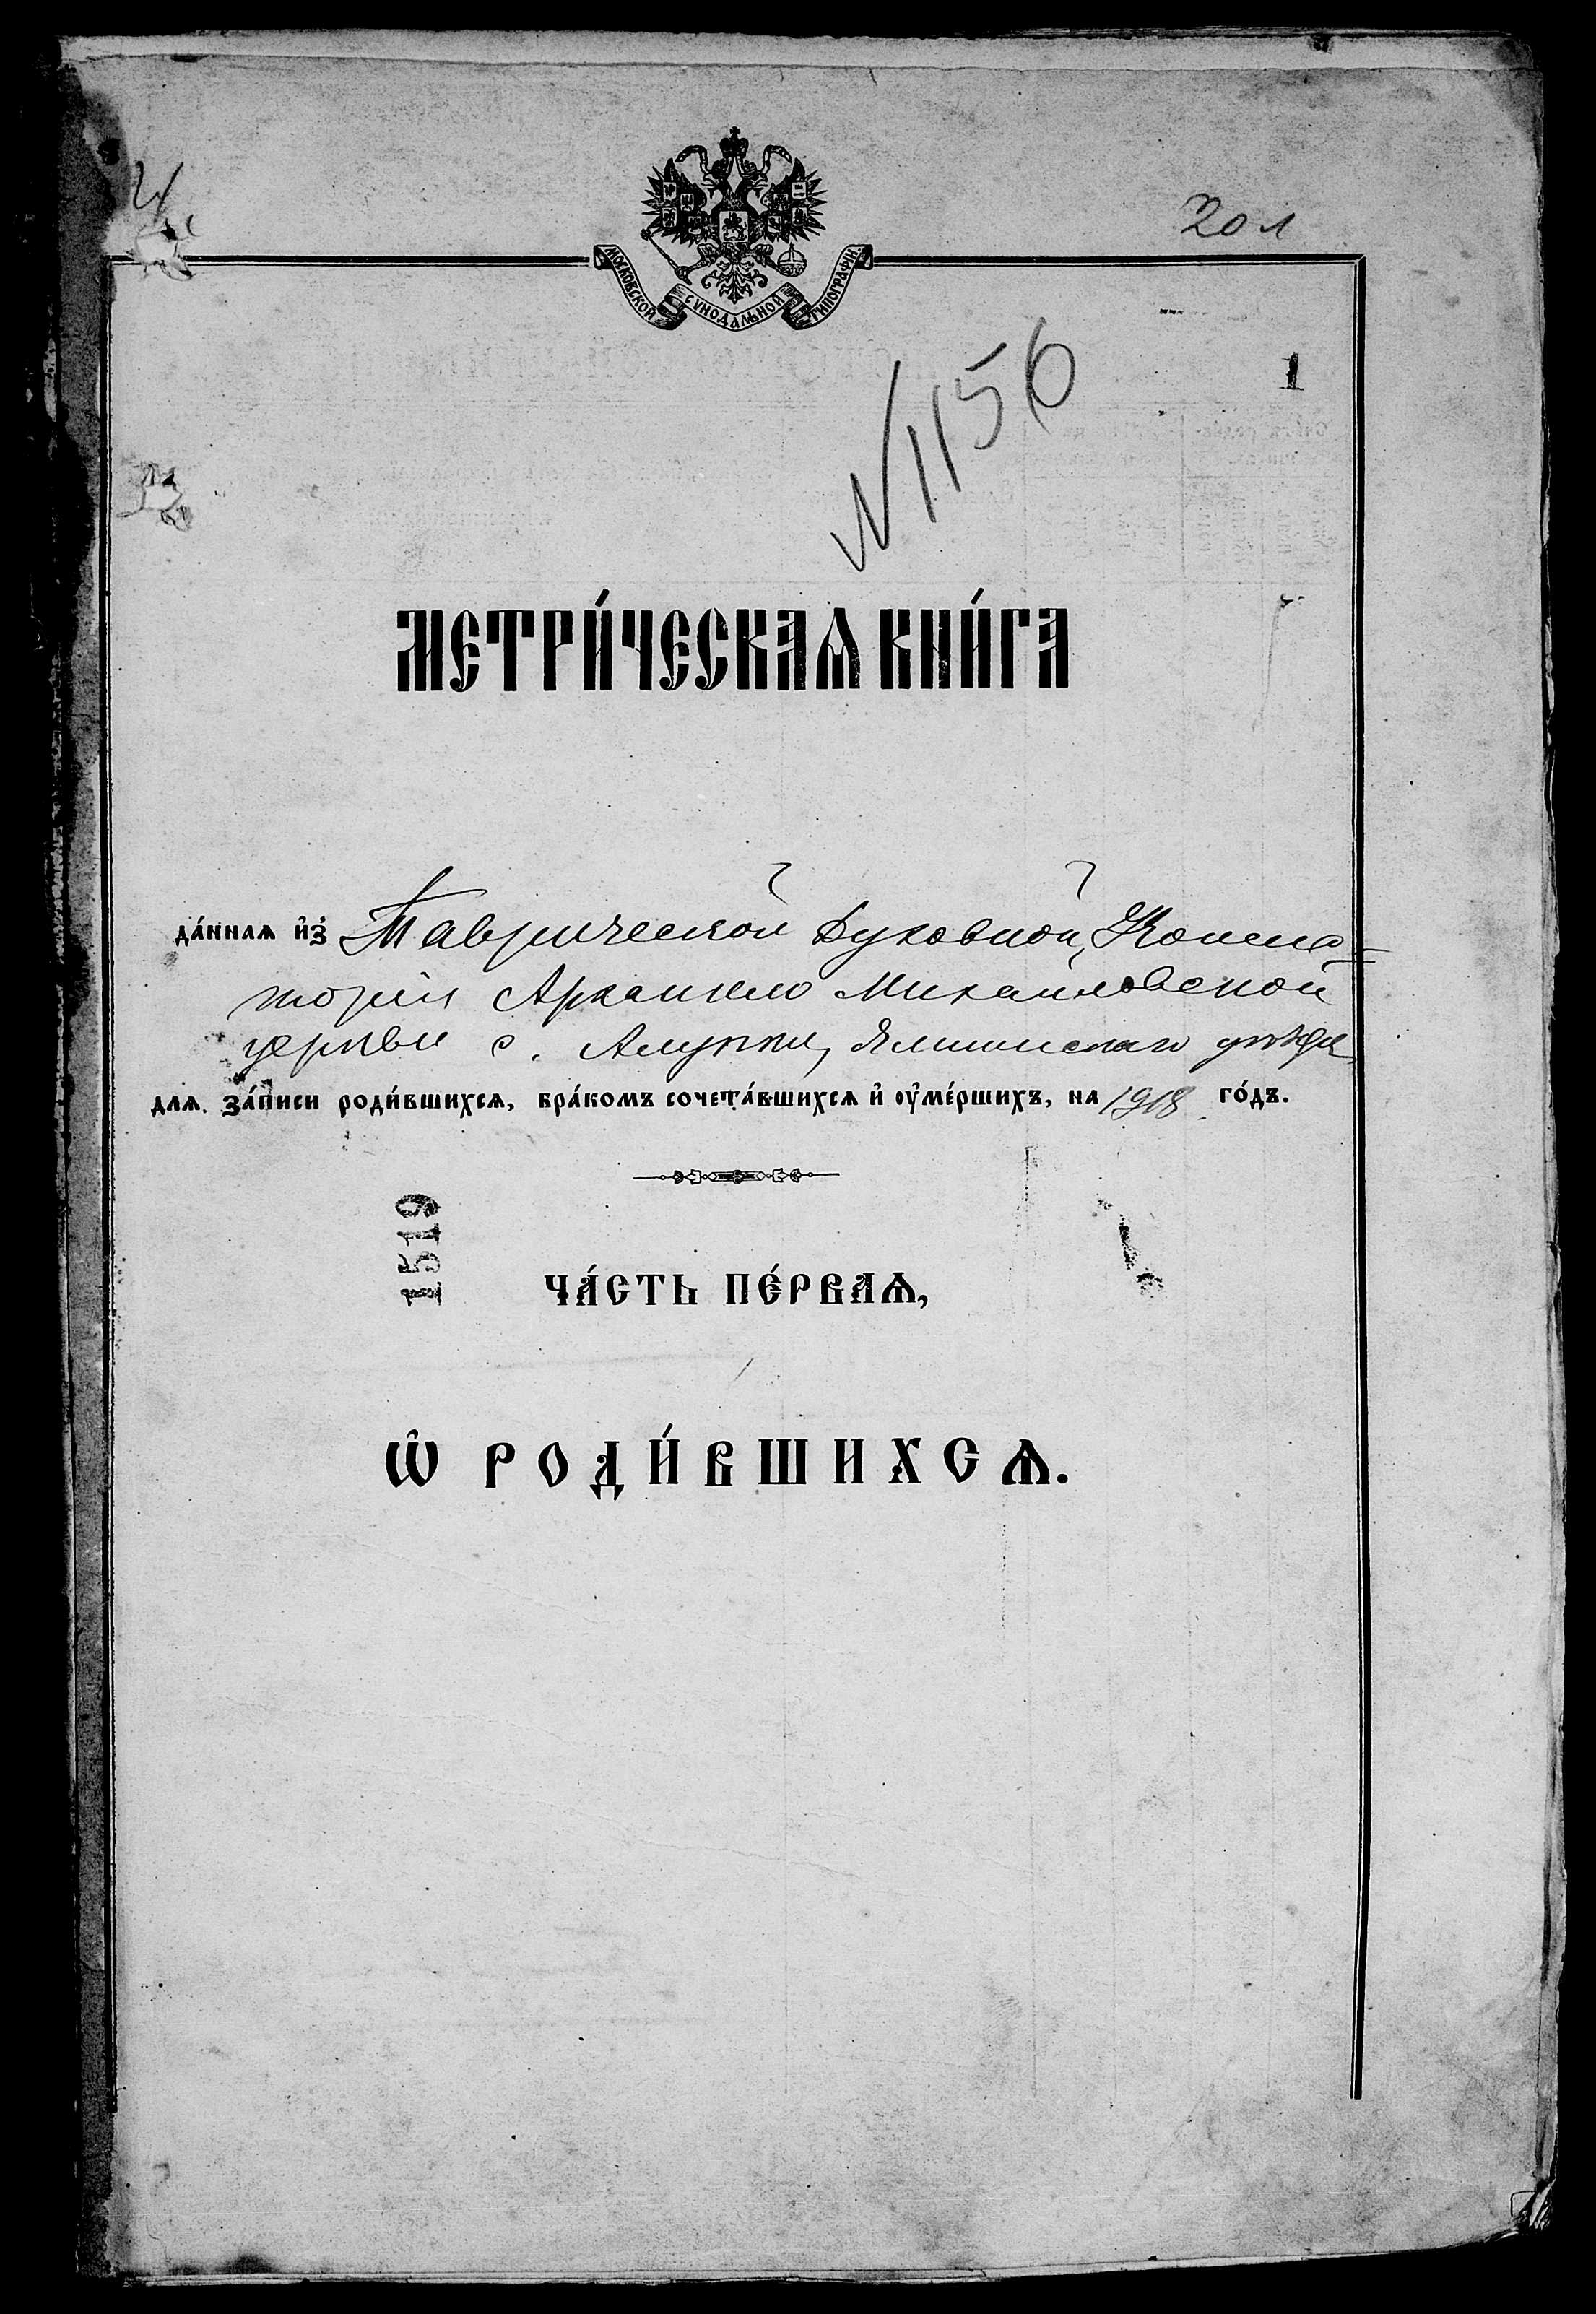 20 л
МОСКОВСКОЙ СѴНОДАЛЬНОЙ ТИПОГРАФІИ.
1
N 1156
МЕТРИ́ЧЕСКАѦ КНИ́ГА
да́ннаѧ и҆з̾ Таврической Духовной Консис=
торіи Архангело Михайловской
церкви с. Алупки, Ялтинскаго уѣзда
длѧ за́писи роди́вшихсѧ, бра́комъ сочета́вшихсѧ и҆ оу҆ме́ршихъ, на 1918 го́дъ.
1519
ЧА́СТЬ ПЕ́РВАѦ,
Ѡ҆ РОДИ́ВШИХСѦ.